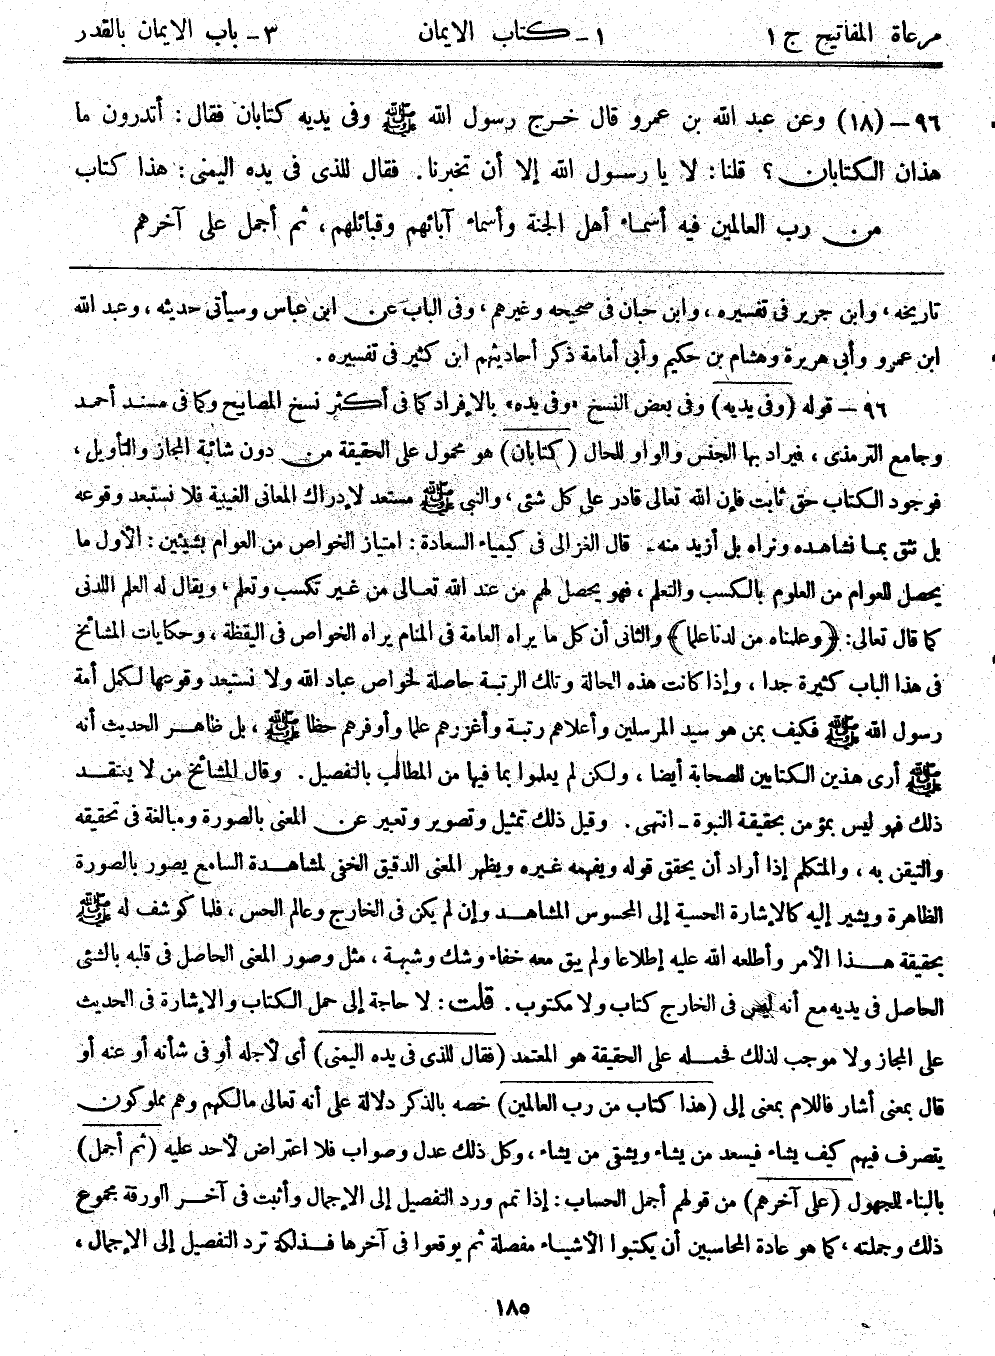 مرعاة المفاتيح ج ١
١ - كتاب الايمان
٣ - باب الايمان بالقدر
٩٦ – (١٨) وعن عبد الله بن عمرو قال خرج رسول الله ﷺ وفى يديه كتابان فقال : أتدرون ما
هذان الكتابان ؟ قلنا : لا يا رسول الله إلا أن تخبرنا . فقال للذى فى يده اليمنى : هذا كتاب
من رب العالمين فيه أسماء أهل الجنة وأسماء آبائهم وقبائلهم ، ثم أجمل على آخرهم
تاريخه ، وابن جرير فى تفسيره ، وابن حبان فى صحيحه وغيرهم ، وفى الباب عن ابن عباس وسيأتى حديثه ، وعبد الله
ابن عمرو وأبى هريرة وهشام بن حكيم وأبى أمامة ذكر أحاديثهم ابن كثير فى تفسيره .
٩٦ – قوله (وفى يديه) وفى بعض النسخ «وفى يده» بالإفراد كما فى أكثر نسخ المصابيح وكما فى مسند أحمد
وجامع الترمذى ، فيراد بها الجنس والواو للحال (كتابان) هو محمول على الحقيقة من دون شائبة المجاز والتأويل ،
فوجود الكتاب حق ثابت فإن الله تعالى قادر على كل شئى ، والنبى ﷺ مستعد لإدراك المعانى الغيبية فلا نستبعد وقوعه
بل نثق بما نشاهده ونراه بل أزيد منه - قال الغزالى فى كيمياء السعادة : امتياز الخواص من العوام بشيئين : الأول ما
يحصل للعوام من العلوم بالكسب والتعلم ، فهو يحصل لهم من عند الله تعالى من غير تكسب وتعلم ، ويقال له العلم اللدنى
كما قال تعالى : ﴿وعلمناه من لدنا علما﴾ والثانى أن كل ما يراه العامة فى المنام يراه الخواص فى اليقظة ، وحكايات المشائخ
فى هذا الباب كثيرة جدا ، وإذا كانت هذه الحالة وتلك الرتبة حاصلة لخواص عباد الله ولا نستبعد وقوعها لكمل أمة
رسول الله ﷺ فكيف بمن هو سيد المرسلين وأعلاهم رتبة وأغزرهم علما وأوفرهم حظا ﷺ ، بل ظاهر الحديث أنه
ﷺ أرى هذين الكتابين للصحابة أيضا ، ولكن لم يعلموا بما فيها من المطالب بالتفصيل . وقال المشائخ من لا يعتقد
ذلك فهو ليس بمؤمن بحقيقة النبوة - انتهى . وقيل ذلك تمثيل وتصوير وتعبير عن المعنى بالصورة ومبالغة فى تحقيقه
والتيقن به ، والمتكلم إذا أراد أن يحقق قوله ويفهمه غيره ويظهر المعنى الدقيق الخفى لمشاهدة السامع يصور بالصورة
الظاهرة ويشير إليه كالإشارة الحسية إلى المحسوس المشاهد وإن لم يكن فى الخارج وعالم الحس ، فلما كوشف له ﷺ
بحقيقة هذا الأمر وأطلعه الله عليه إطلاعا ولم يبق معه خفاء وشك وشبهة ، مثل وصور المعنى الحاصل فى قلبه بالشئى
الحاصل فى يديه مع أنه ليس فى الخارج كتاب ولا مكتوب . قلت : لا حاجة إلى حمل الكتاب والإشارة فى الحديث
على المجاز ولا موجب لذلك فحمله على الحقيقة هو المعتمد (فقال للذى فى يده اليمنى) أى لأجله أو فى شأنه أو عنه أو
قال بمعنى أشار فاللام بمعنى إلى (هذا كتاب من رب العالمين) خصه بالذكر دلالة على أنه تعالى مالكهم وهم مملوكون
يتصرف فيهم كيف يشاء فيسعد من يشاء ويشقى من يشاء ، وكل ذلك عدل وصواب فلا اعتراض لأحد عليه (ثم أجمل)
بالبناء للمجهول (على آخرهم) من قولهم أجمل الحساب : إذا تمم ورد التفصيل إلى الإجمال وأثبت فى آخر الورقة مجموع
ذلك وجملته ، كما هو عادة المحاسبين أن يكتبوا الأشياء مفصلة ثم يوقعوا فى آخرها فذلكة ترد التفصيل إلى الإجمال ،
١٨٥